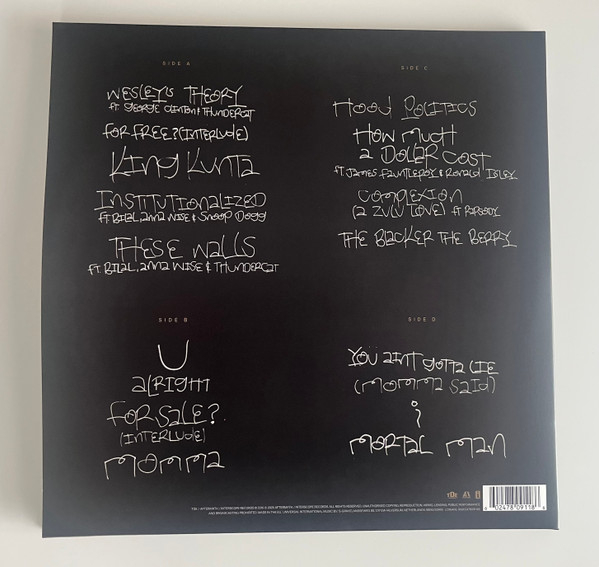 SIDE A
WESLEY'S THEORY
FT. GEORGE CLINTON & THUNDERCAT
FOR FREE? (INTERLUDE)
KING KUNTA
INSTITUTIONALIZED
FT. BILAL, ANNA WISE & SNOOP DOGG
THESE WALLS
FT. BILAL, ANNA WISE & THUNDERCAT
SIDE B
U
ALRIGHT
FOR SALE?
(INTERLUDE)
MOMMA
SIDE C
HOOD POLITICS
HOW MUCH
A DOLLAR COST
FT. JAMES FAUNTLEROY & RONALD ISLEY
COMPLEXION
(A ZULU LOVE) FT. RAPSODY
THE BLACKER THE BERRY
SIDE D
YOU AINT GOTTA LIE
(MOMMA SAID)
i
MORTAL MAN
TDE